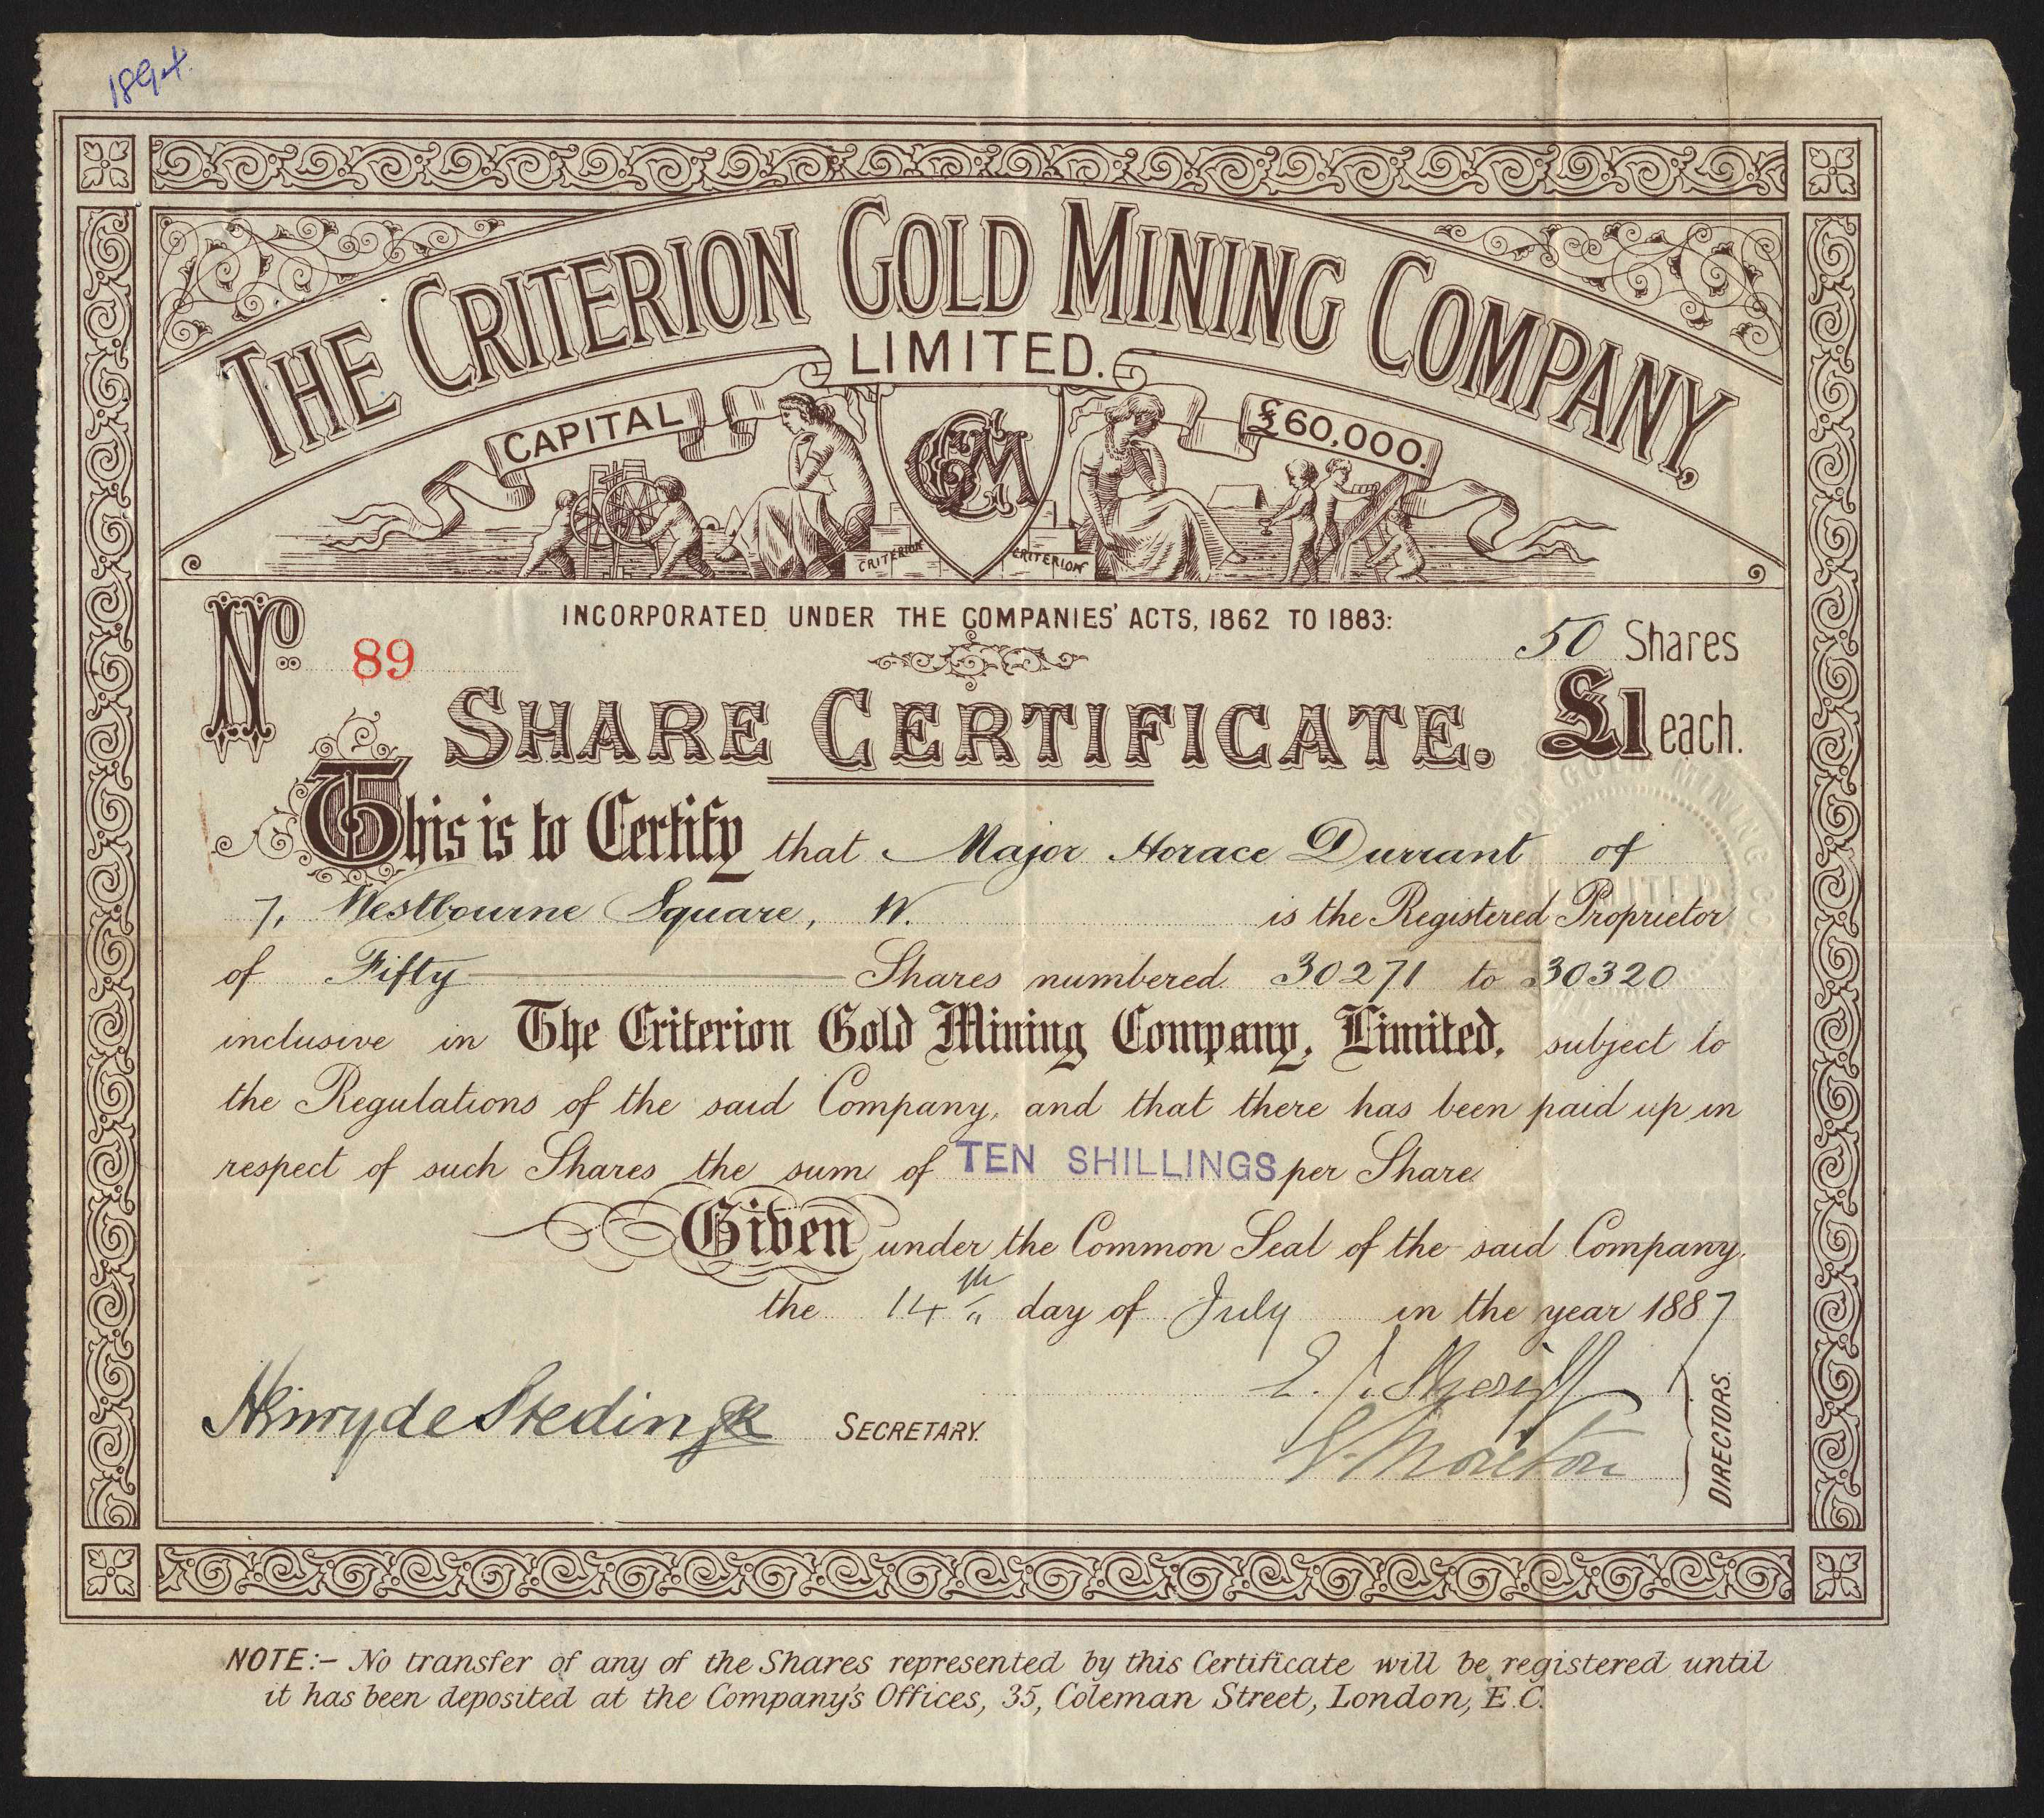 1894.
THE CRITERION GOLD MINING COMPANY,
LIMITED.
CAPITAL £60,000.
CGMC
CRITERION CRITERION
INCORPORATED UNDER THE COMPANIES' ACTS, 1862 TO 1883:
No 89
50 Shares
SHARE CERTIFICATE.
£1 each.
This is to Certify that Major Horace Durrant of
7, Westbourne Square, W. is the Registered Proprietor
of Fifty Shares numbered 30271 to 30320
inclusive in The Criterion Gold Mining Company, Limited, subject to
the Regulations of the said Company, and that there has been paid up in
respect of such Shares the sum of TEN SHILLINGS per Share
Given under the Common Seal of the said Company,
the 14th day of July in the year 1887
Henry de Stedingk SECRETARY.
Moreton
DIRECTORS.
GOLD MINING CO.
LIMITED
NOTE:- No transfer of any of the Shares represented by this Certificate will be registered until
it has been deposited at the Company's Offices, 35, Coleman Street, London, E.C.